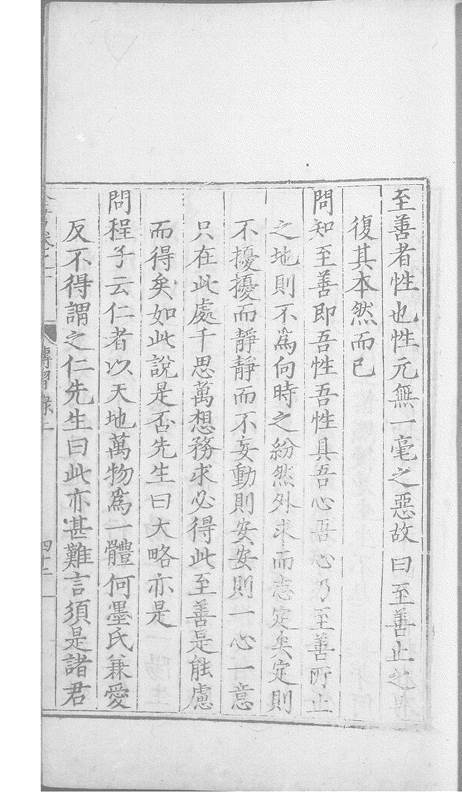 至善者性也性元無一毫之惡故曰至善止之是
復其本然而已
問知至善即吾性吾性具吾心吾心乃至善所止
之地則不爲向時之紛然外求而志定矣定則
不擾擾而靜靜而不妄動則安安則一心一意
只在此處千思萬想務求必得此至善是能慮
而得矣如此說是否先生曰大略亦是
問程子云仁者以天地萬物爲一體何墨氏兼愛
反不得謂之仁先生曰此亦甚難言須是諸君
傳習錄